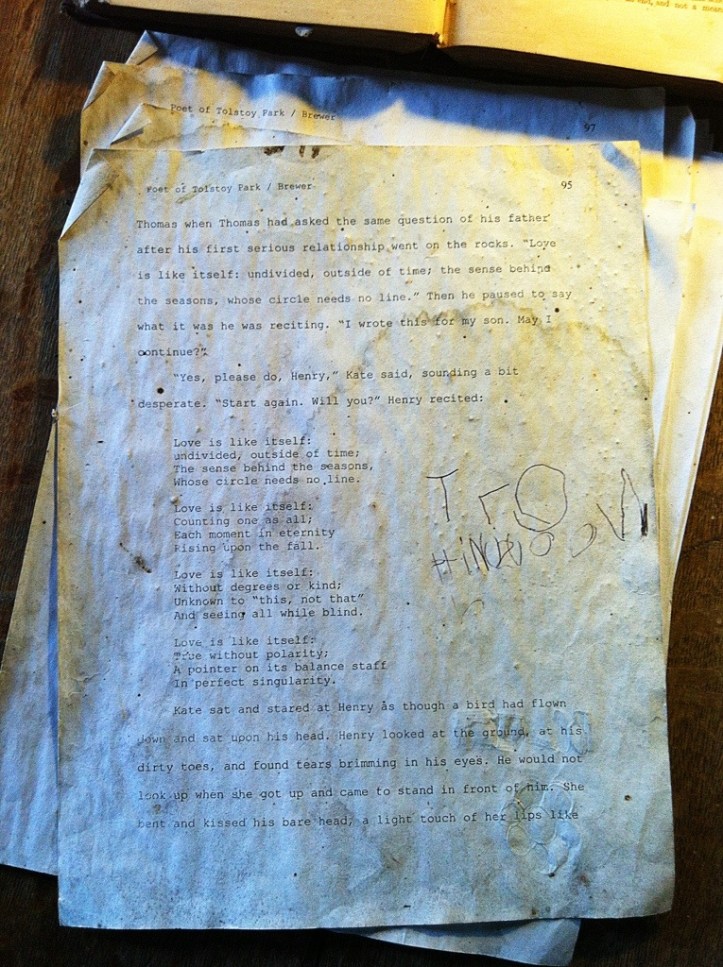 and not a mean
Poet of Tolstoy Park / Brewer
97
Poet of Tolstoy Park / Brewer
95
Thomas when Thomas had asked the same question of his father
after his first serious relationship went on the rocks. "Love
is like itself: undivided, outside of time; the sense behind
the seasons, whose circle needs no line." Then he paused to say
what it was he was reciting. "I wrote this for my son. May I
continue?"
"Yes, please do, Henry," Kate said, sounding a bit
desperate. "Start again. Will you?" Henry recited:
Love is like itself:
undivided, outside of time;
The sense behind the seasons,
Whose circle needs no line.
Love is like itself:
Counting one as all;
Each moment in eternity
Rising upon the fall.
Love is like itself:
Without degrees or kind;
Unknown to "this, not that"
And seeing all while blind.
Love is like itself:
True without polarity;
A pointer on its balance staff
In perfect singularity.
Kate sat and stared at Henry as though a bird had flown
down and sat upon his head. Henry looked at the ground, at his
dirty toes, and found tears brimming in his eyes. He would not
look up when she got up and came to stand in front of him. She
bent and kissed his bare head, a light touch of her lips like